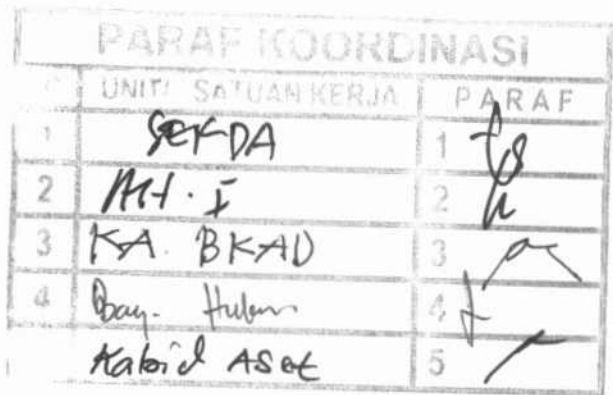 PARAF KOORDINASI
UNIT/ SATUAN KERJA PARAF
1 SEKDA 1
2 2
3 KA. BKAD 3
4 Bag. Hukum 4
Kabid Aset 5